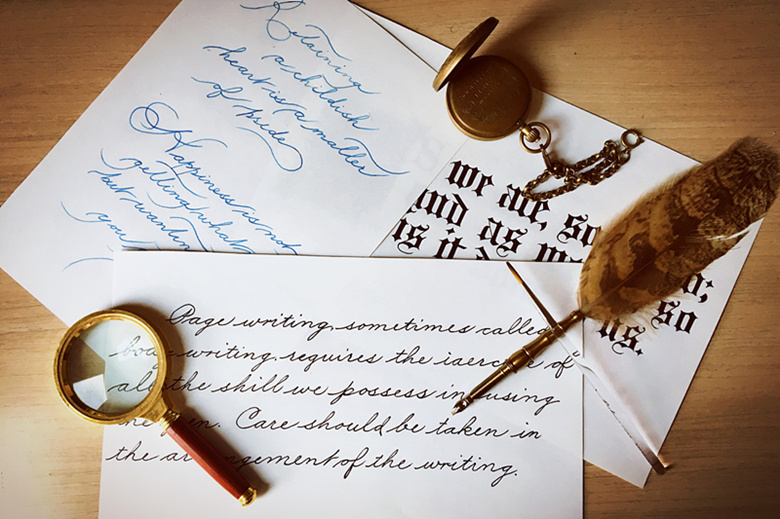 Retaining
a childish
heart is a matter
of pride
Happiness is not
getting what
but wantin
you
we are, so
And as
is it
so
us.
Page writing, sometimes called
body writing, requires the of
all the skill we possess in using
the pen. Care should be taken in
the arrangement of the writing.